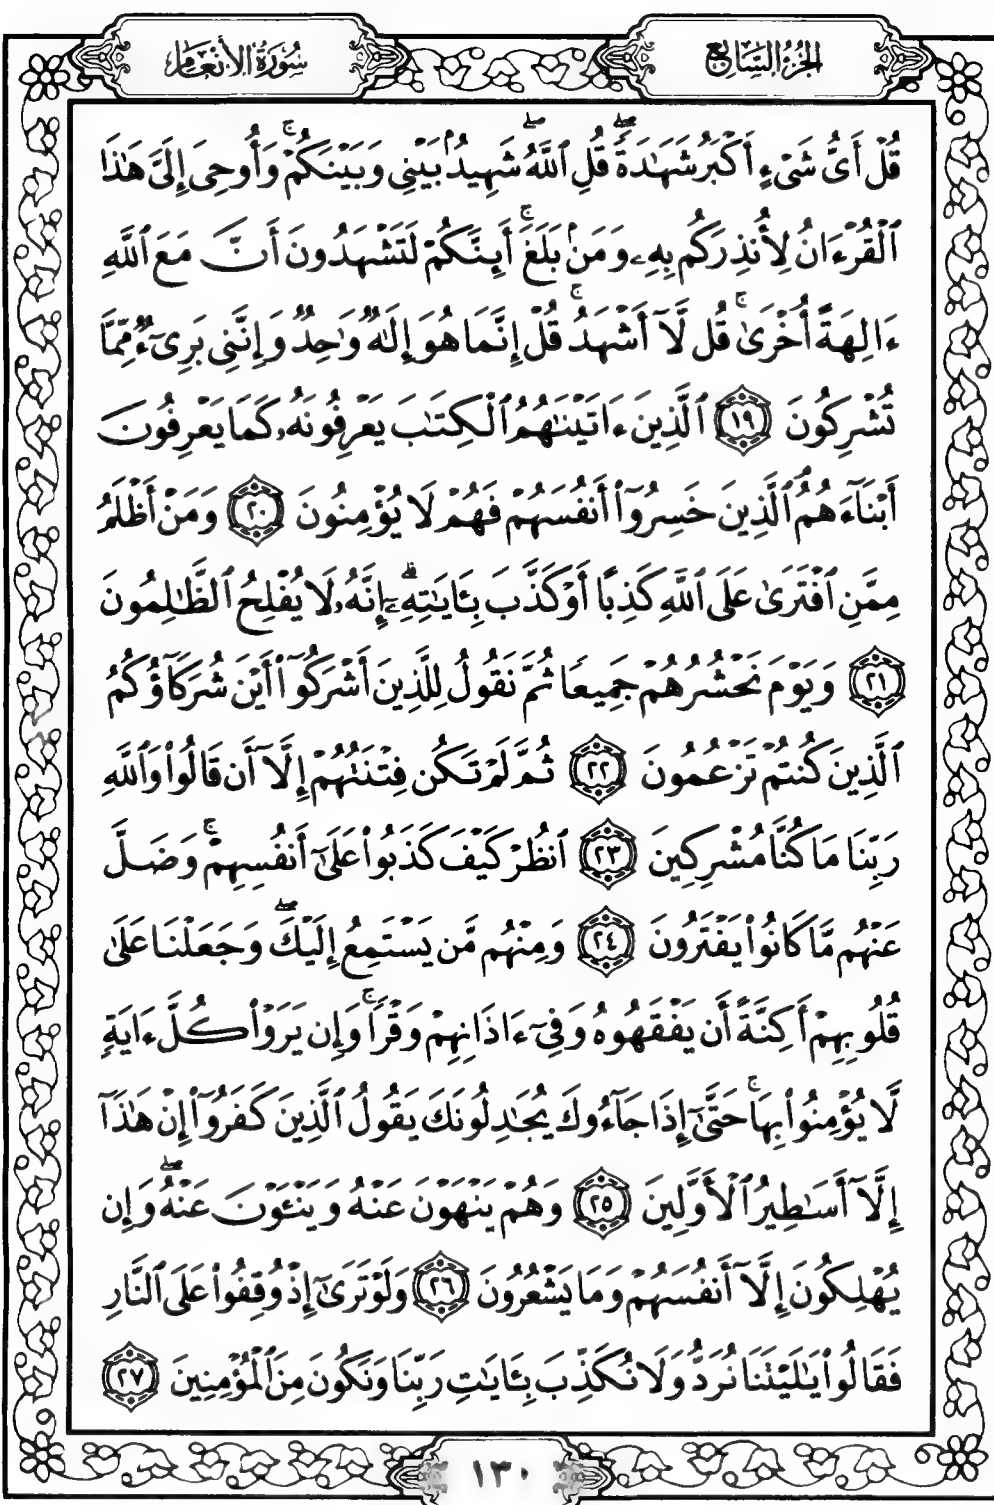 الجزء السابع
سورة الأنعام
قُلْ أَىُّ شَىْءٍ أَكْبَرُ شَهَـٰدَةً ۖ قُلِ ٱللَّهُ ۖ شَهِيدٌۢ بَيْنِى وَبَيْنَكُمْ ۚ وَأُوحِىَ إِلَىَّ هَـٰذَا
ٱلْقُرْءَانُ لِأُنذِرَكُم بِهِۦ وَمَنۢ بَلَغَ ۚ أَئِنَّكُمْ لَتَشْهَدُونَ أَنَّ مَعَ ٱللَّهِ
ءَالِهَةً أُخْرَىٰ ۚ قُل لَّآ أَشْهَدُ ۚ قُلْ إِنَّمَا هُوَ إِلَـٰهٌ وَٰحِدٌ وَإِنَّنِى بَرِىٓءٌ مِّمَّا
تُشْرِكُونَ ١٩ ٱلَّذِينَ ءَاتَيْنَـٰهُمُ ٱلْكِتَـٰبَ يَعْرِفُونَهُۥ كَمَا يَعْرِفُونَ
أَبْنَآءَهُمُ ٱلَّذِينَ خَسِرُوٓا۟ أَنفُسَهُمْ فَهُمْ لَا يُؤْمِنُونَ ٢٠ وَمَنْ أَظْلَمُ
مِمَّنِ ٱفْتَرَىٰ عَلَى ٱللَّهِ كَذِبًا أَوْ كَذَّبَ بِـَٔايَـٰتِهِۦٓ ۗ إِنَّهُۥ لَا يُفْلِحُ ٱلظَّـٰلِمُونَ
٢١ وَيَوْمَ نَحْشُرُهُمْ جَمِيعًا ثُمَّ نَقُولُ لِلَّذِينَ أَشْرَكُوٓا۟ أَيْنَ شُرَكَآؤُكُمُ
ٱلَّذِينَ كُنتُمْ تَزْعُمُونَ ٢٢ ثُمَّ لَمْ تَكُن فِتْنَتُهُمْ إِلَّآ أَن قَالُوا۟ وَٱللَّهِ
رَبِّنَا مَا كُنَّا مُشْرِكِينَ ٢٣ ٱنظُرْ كَيْفَ كَذَبُوا۟ عَلَىٰٓ أَنفُسِهِمْ ۚ وَضَلَّ
عَنْهُم مَّا كَانُوا۟ يَفْتَرُونَ ٢٤ وَمِنْهُم مَّن يَسْتَمِعُ إِلَيْكَ ۖ وَجَعَلْنَا عَلَىٰ
قُلُوبِهِمْ أَكِنَّةً أَن يَفْقَهُوهُ وَفِىٓ ءَاذَانِهِمْ وَقْرًا ۚ وَإِن يَرَوْا۟ كُلَّ ءَايَةٍ
لَّا يُؤْمِنُوا۟ بِهَا ۚ حَتَّىٰٓ إِذَا جَآءُوكَ يُجَـٰدِلُونَكَ يَقُولُ ٱلَّذِينَ كَفَرُوٓا۟ إِنْ هَـٰذَآ
إِلَّآ أَسَـٰطِيرُ ٱلْأَوَّلِينَ ٢٥ وَهُمْ يَنْهَوْنَ عَنْهُ وَيَنْـَٔوْنَ عَنْهُ ۖ وَإِن
يُهْلِكُونَ إِلَّآ أَنفُسَهُمْ وَمَا يَشْعُرُونَ ٢٦ وَلَوْ تَرَىٰٓ إِذْ وُقِفُوا۟ عَلَى ٱلنَّارِ
فَقَالُوا۟ يَـٰلَيْتَنَا نُرَدُّ وَلَا نُكَذِّبَ بِـَٔايَـٰتِ رَبِّنَا وَنَكُونَ مِنَ ٱلْمُؤْمِنِينَ ٢٧
١٣٠